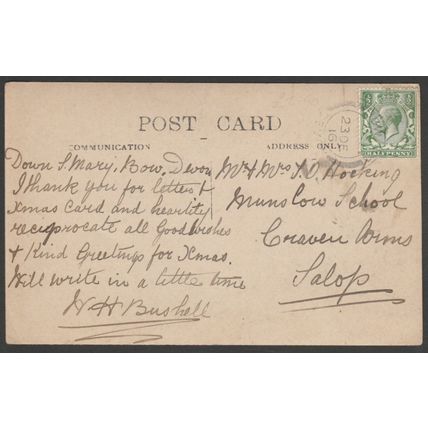 POST CARD
COMMUNICATION
ADDRESS ONLY
Down S. Mary. Bow. Devon
I thank you for letters &
Xmas Card and heartily
reciprocate all Good Wishes
& Kind Greetings for Xmas.
Will write in a little time
W H Bushell
Mr & Mrs J. D. Hocking
Munslow School
Craven Arms
Salop
23 DE
16
HALFPENNY